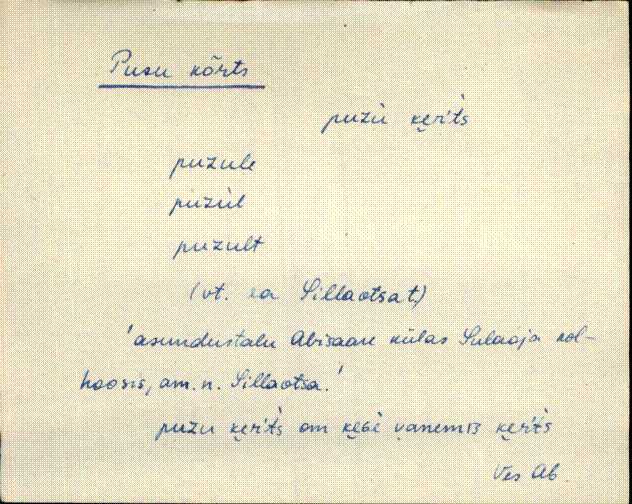 Pusu kõrts
puzù kerìts
puzule
puzùl
puzult
(vt. ka Sillaotsat)
'asundustalu Abisaare külas Sulaoja kol-
hoosis, am. n. Sillaotsa.'
puzu kerìts om kẹ̄̇ɢè vanemʙ kerìts
Ves Ab.